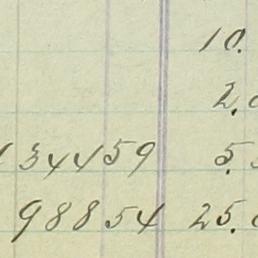 10.
2.
134459 5.
98854 25.